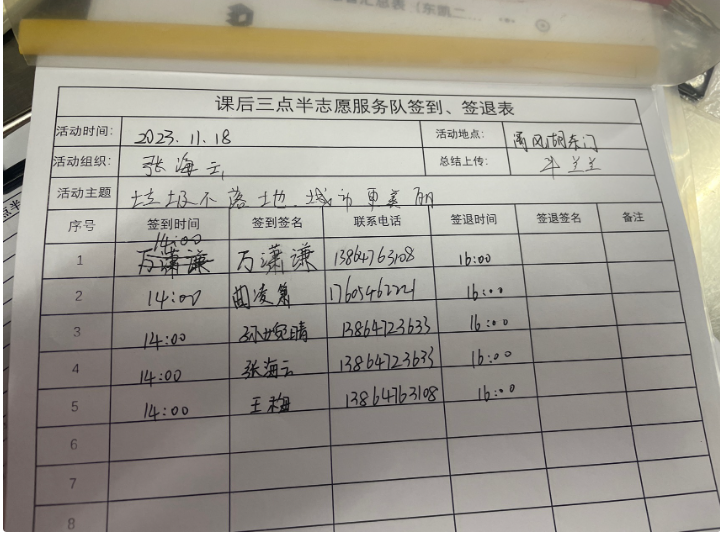 汇总表（东凯二
课后三点半志愿服务队签到、签退表
活动时间： 2023.11.18 活动地点： 东门
活动组织： 张海云 总结上传：
活动主题 垃圾不落地 城市更美丽
序号 签到时间 签到签名 联系电话 签退时间 签退签名 备注
1 14:00 万潇谦 万潇谦 13864763108 16:00
2 14:00 17605462221 16:00
3 14:00 孙婉晴 13864723633 16:00
4 14:00 张海云 13864723633 16:00
5 14:00 王梅 13864763108 16:00
6
7
8